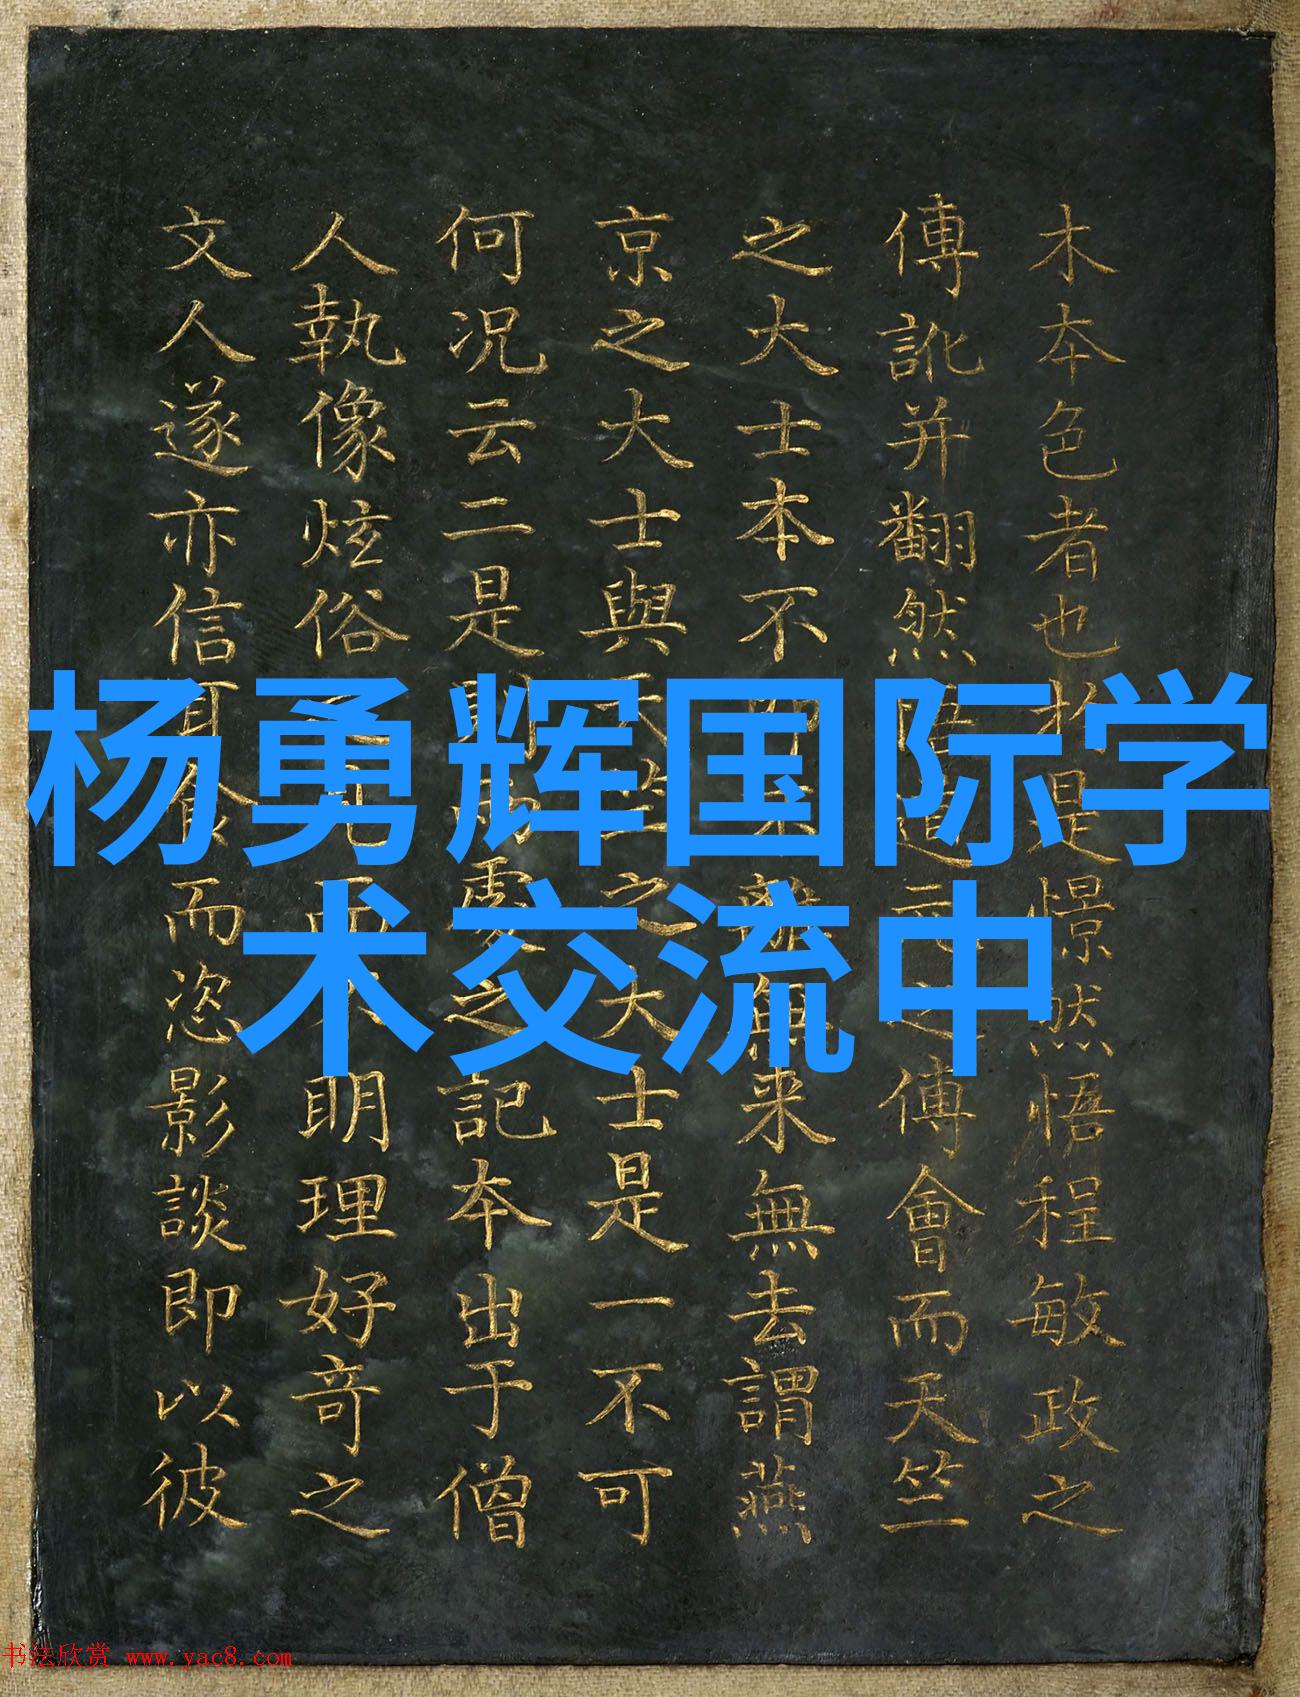 杨勇辉国际学
术交流中
木本色者也於是憬然悟程敏政之
傳訛并翻然道之傅會而天竺
之大士本不無来無去謂燕
京之大士與天竺之大士是一不可
何况云二是則處之記本出于僧
人執像炫俗而不明理好奇之
文人遂亦信耳食而恣影談即以彼
书法欣赏 www.yac8.com